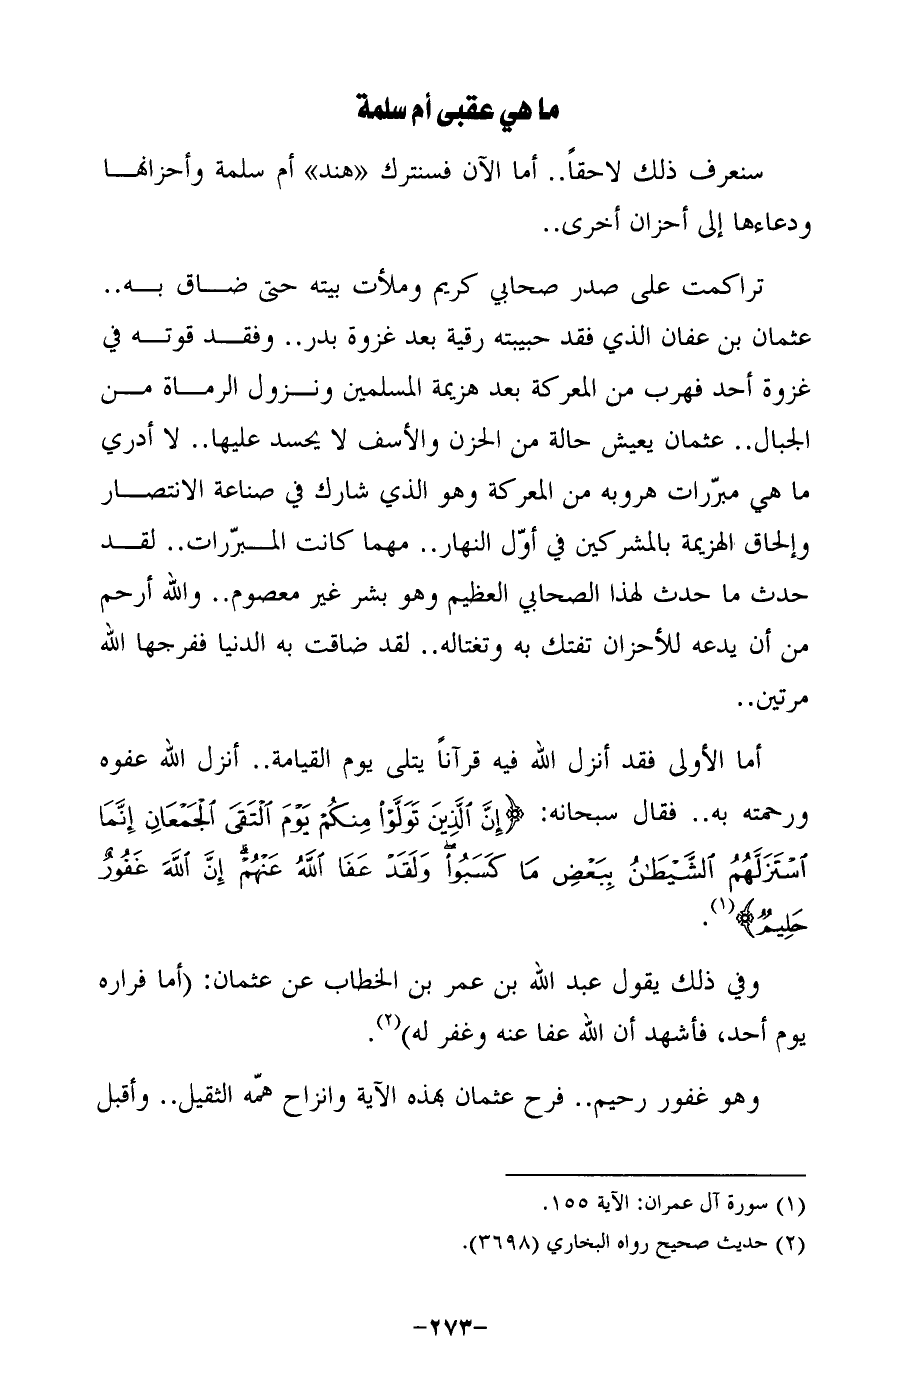 ما هي عقبى أم سلمة
سنعرف ذلك لاحقاً.. أما الآن فسنترك «هند» أم سلمة وأحزانها
ودعاءها إلى أحزان أخرى..
تراكمت على صدر صحابي كريم وملأت بيته حتى ضاق به..
عثمان بن عفان الذي فقد حبيبته رقية بعد غزوة بدر.. وفقد قوته في
غزوة أحد فهرب من المعركة بعد هزيمة المسلمين ونزول الرماة من
الجبال.. عثمان يعيش حالة من الحزن والأسف لا يحسد عليها.. لا أدري
ما هي مبرّرات هروبه من المعركة وهو الذي شارك في صناعة الانتصار
وإلحاق الهزيمة بالمشركين في أوّل النهار.. مهما كانت المبرّرات.. لقد
حدث ما حدث لهذا الصحابي العظيم وهو بشر غير معصوم.. والله أرحم
من أن يدعه للأحزان تفتك به وتغتاله.. لقد ضاقت به الدنيا ففرجها الله
مرتين..
أما الأولى فقد أنزل الله فيه قرآناً يتلى يوم القيامة.. أنزل الله عفوه
ورحمته به.. فقال سبحانه: ﴿إِنَّ ٱلَّذِينَ تَوَلَّوْا۟ مِنكُمْ يَوْمَ ٱلْتَقَى ٱلْجَمْعَانِ إِنَّمَا
ٱسْتَزَلَّهُمُ ٱلشَّيْطَـٰنُ بِبَعْضِ مَا كَسَبُوا۟ۖ وَلَقَدْ عَفَا ٱللَّهُ عَنْهُمْۗ إِنَّ ٱللَّهَ غَفُورٌ
حَلِيمٌ﴾(١).
وفي ذلك يقول عبد الله بن عمر بن الخطاب عن عثمان: (أما فراره
يوم أحد، فأشهد أن الله عفا عنه وغفر له)(٢).
وهو غفور رحيم.. فرح عثمان بهذه الآية وانزاح همّه الثقيل.. وأقبل
(١) سورة آل عمران: الآية ١٥٥.
(٢) حديث صحيح رواه البخاري (٣٦٩٨).
-٢٧٣-